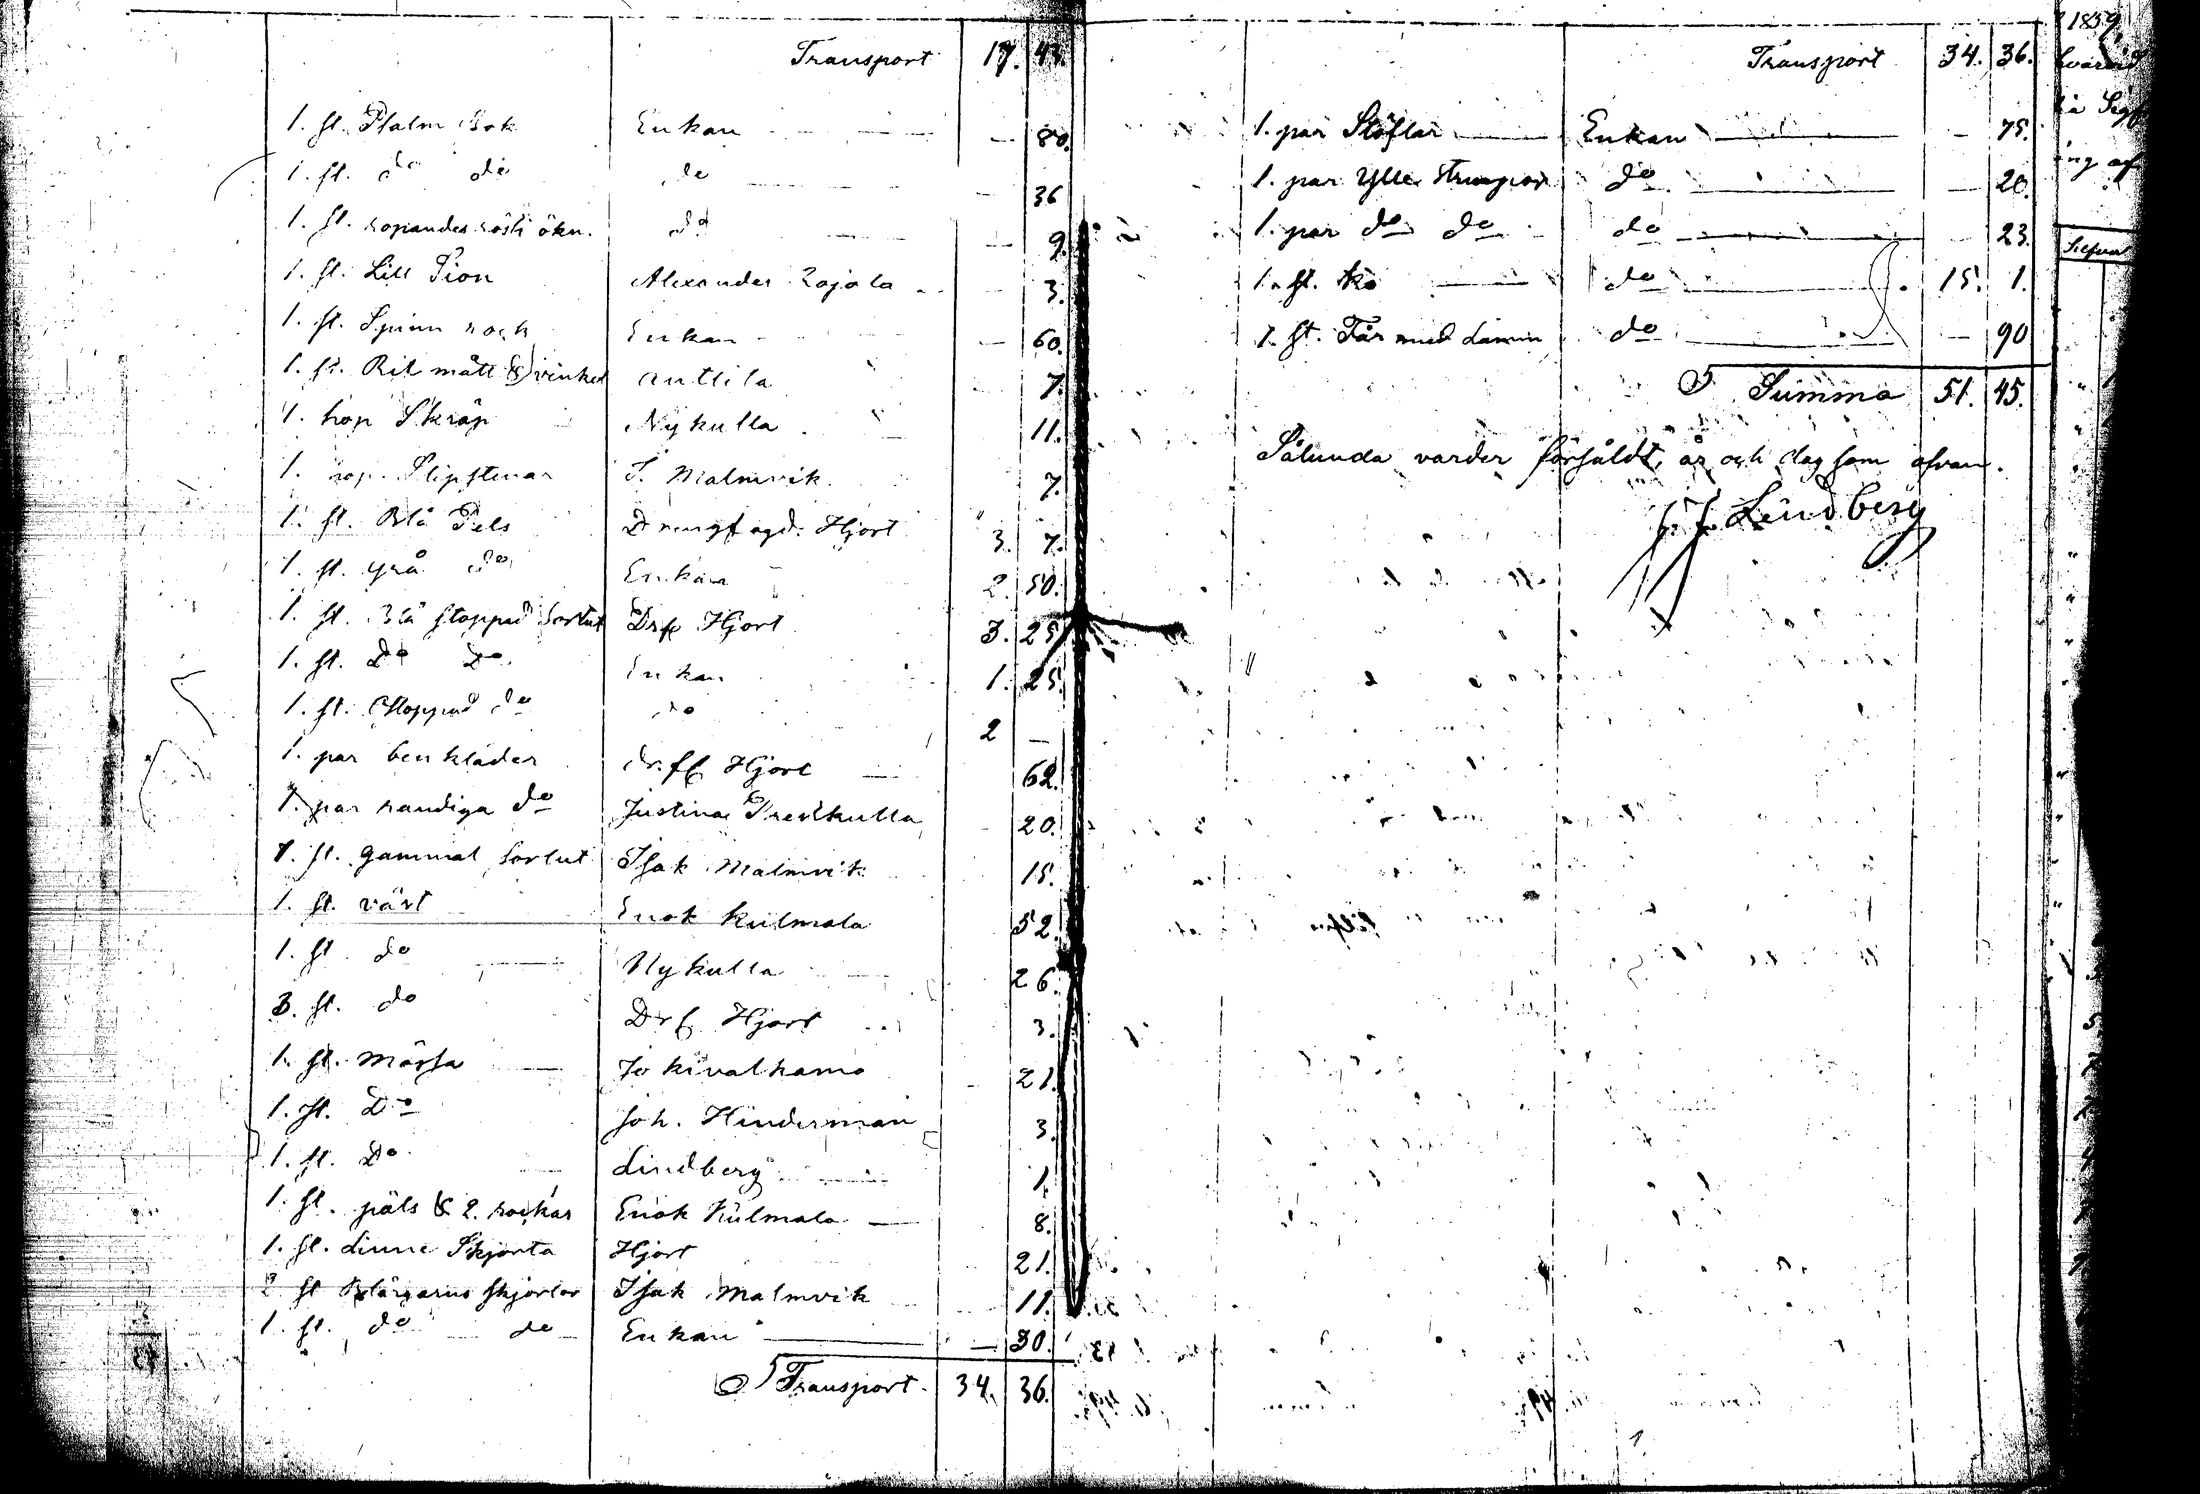 Transport 17. 43.
1. st. Psalm Bok Enkan — 80.
1. st. do do do — 36
1. st. ropandes röst i ökn. do — 9.
1. st. Lill Sion Alexander Rajala — 3.
1. st. Spinn rock Enkan — 60.
1. st. Rit mått & vinkel Anttila 7.
1. hop Skräp Nykulla 11.
1. hop. Slipstenar I. Malmvik. 7.
1. st. Blå Pels Drengfogd. Hjort 3. 7.
1. st. grå do Enkan 2. 50.
1. st. Blå stoppad Sortut Drf Hjort 3. 25.
1. st. Do Do. Enkan 1. 25.
1. st. Stoppad do do 2 —
1. par benkläder dr.ff Hjort 62.
1. par randiga do Justina Predikulla 20.
1. st. gammal Sortut Isak Malmvik 15.
1. st. väst Enok Kulmala 52.
1. st. do Nykulla 26.
3. st. do Drf Hjort 3.
1. st. Mössa Jokivalkama 21.
1. st. Do Joh. Hinderman 3.
1. st. Do Lindberg 1.
1. st. päls & 2. rockar Enok Kulmala — 8.
1. st. Linne Skjorta Hjort 21.
2 st Blårgarns skjortor Isak Malmvik 11.
1. st. do do Enkan — 30.
Transport. 34. 36.
Transport 34. 36.
1. par Stöflar Enkan — 75.
1. par Ylle strumpor do — 20.
1. par do do do — 23.
1. st. Ko do 15. 1.
1. st. Får med Lamm do — 90
Summa 51. 45.
Sålunda vardet försåldt, år och dag som ofvan.
Lindberg
1859
ing af